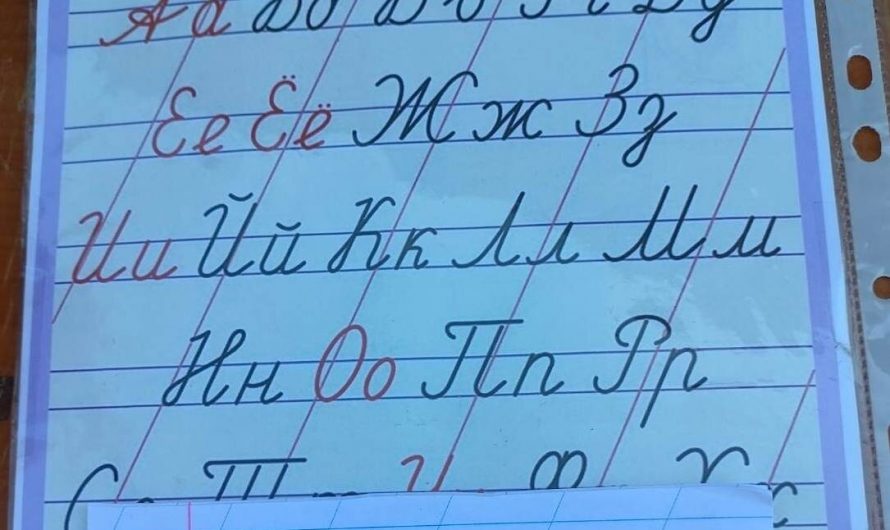 Аа Бб Вв Гг Дд
Ее Ёё Жж Зз
Ии Йй Кк Лл Мм
Нн Оо Пп Рр